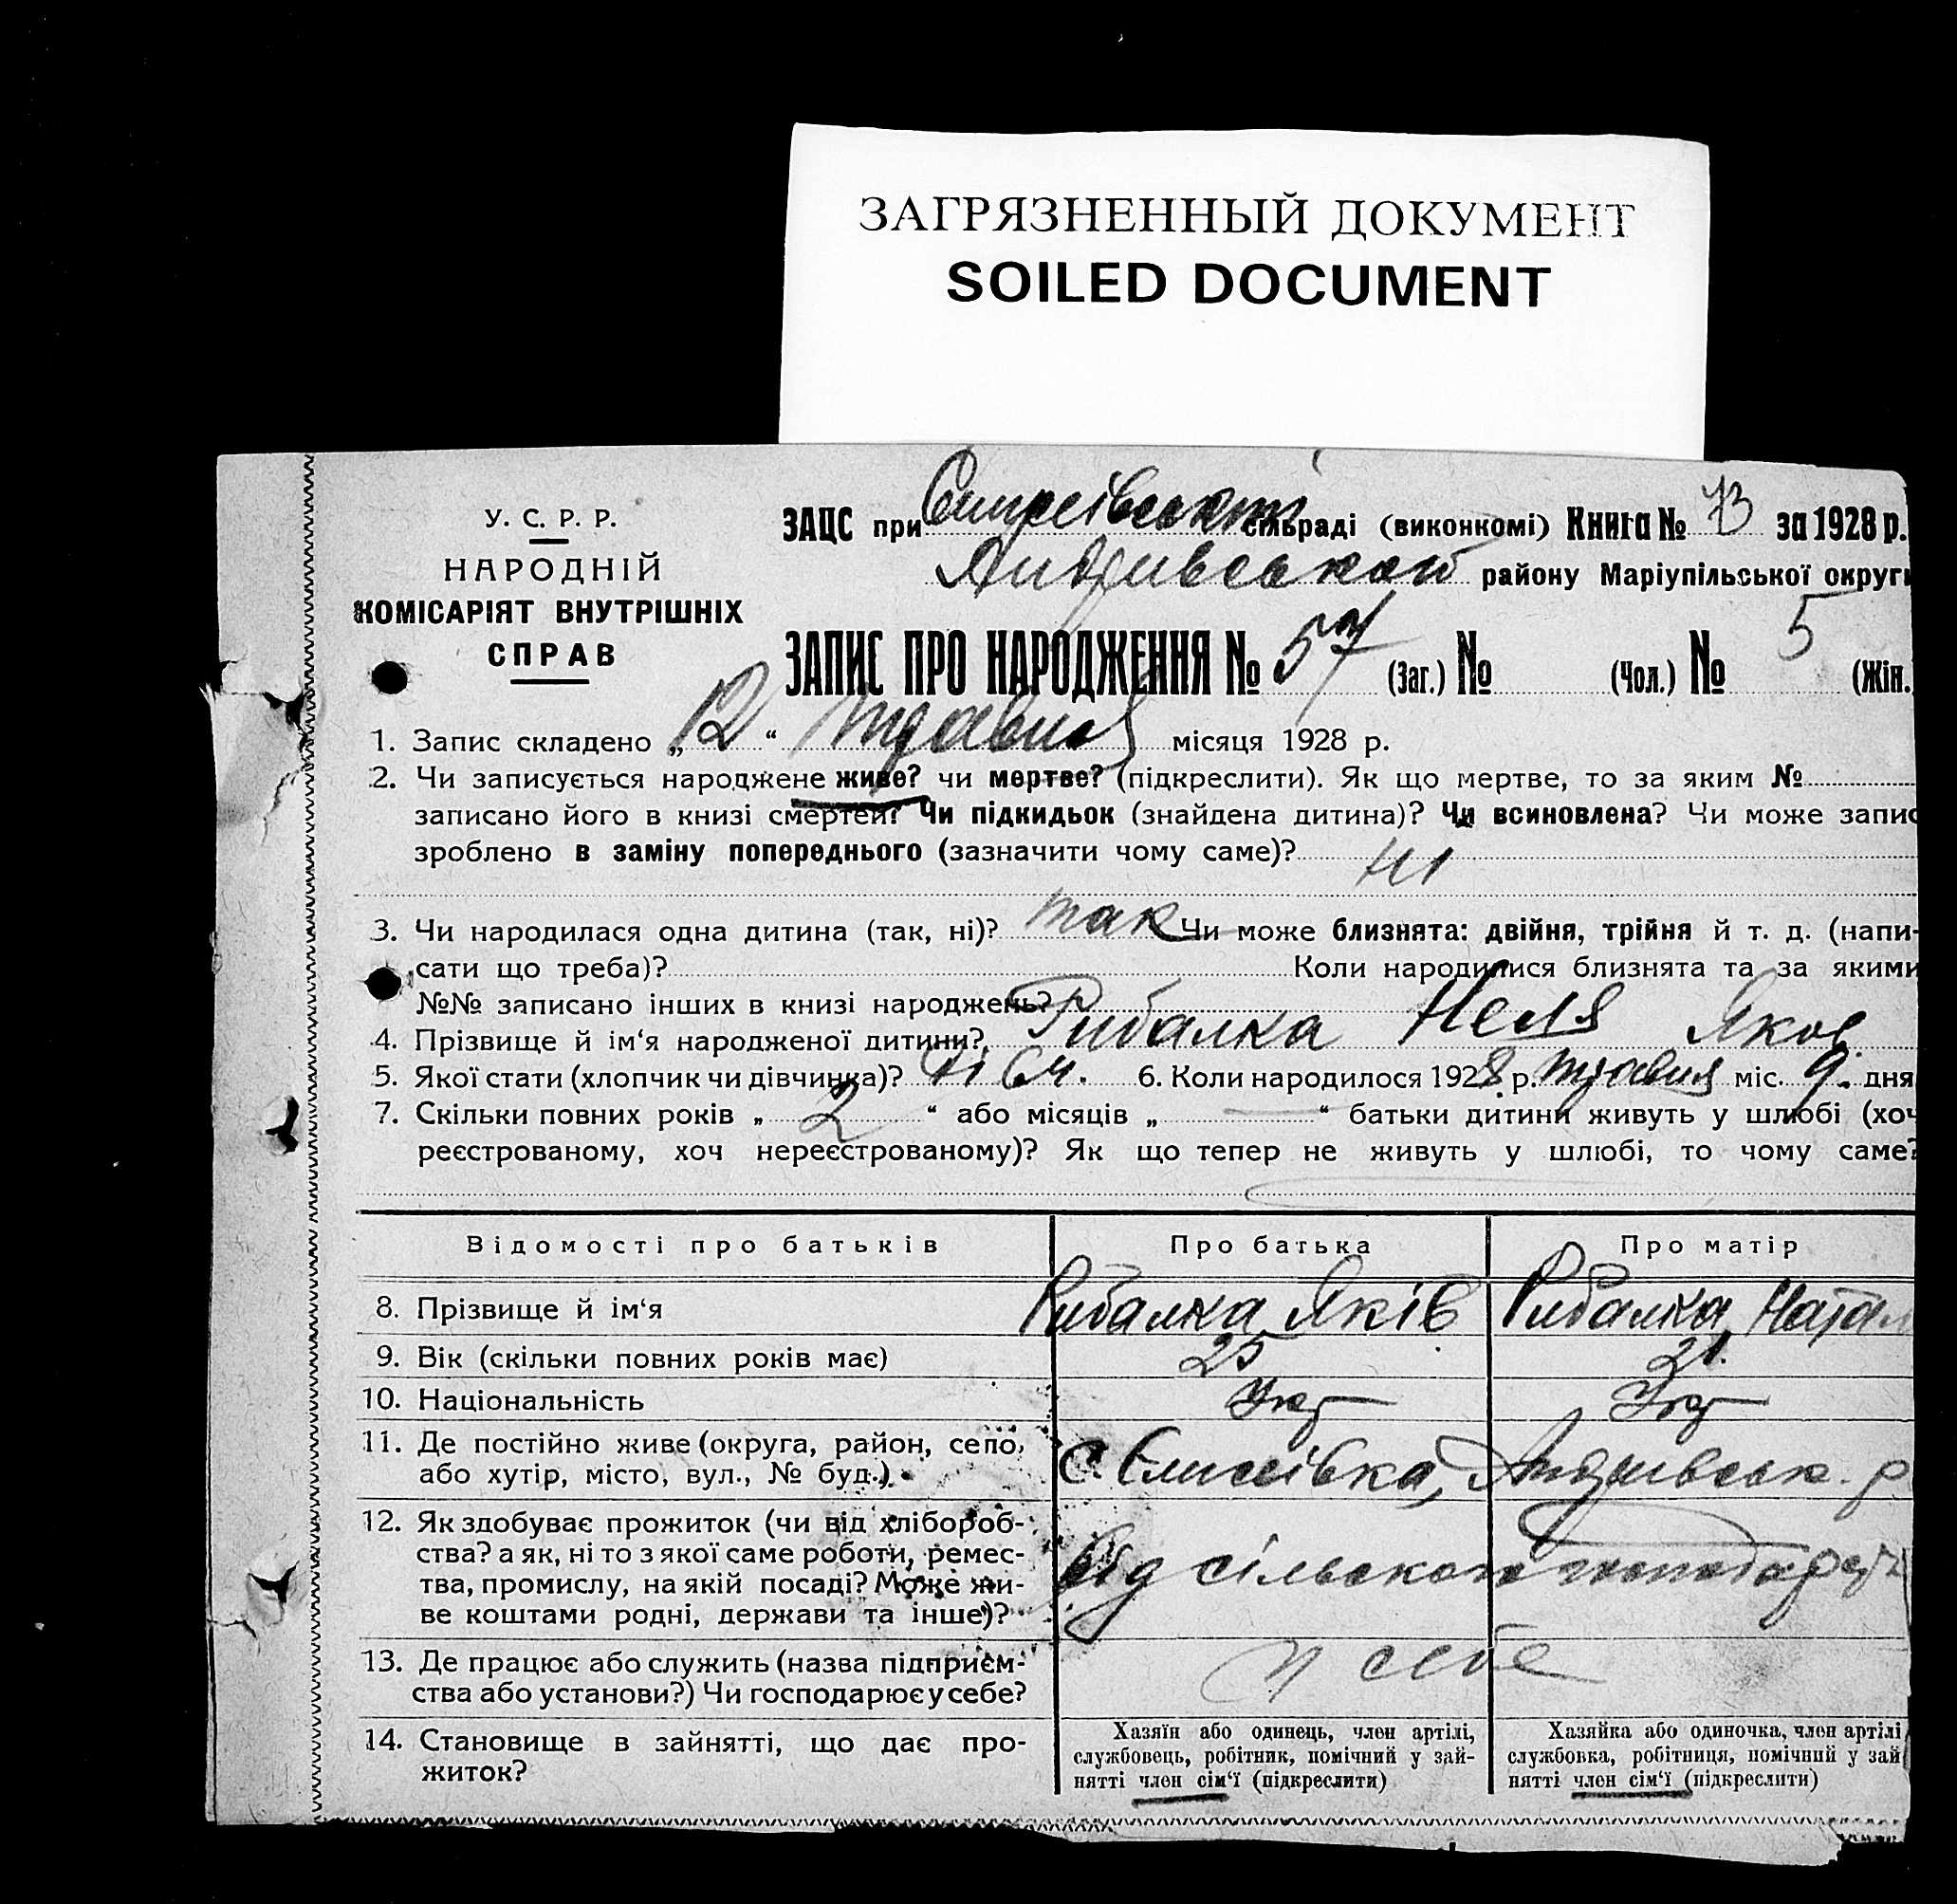 ЗАГРЯЗНЕННЫЙ ДОКУМЕНТ
SOILED DOCUMENT
У. С. Р. Р.
НАРОДНІЙ
КОМІСАРІЯТ ВНУТРІШНІХ
СПРАВ
ЗАЦС при сільраді (виконкомі) Книга № за 1928 р.
району Маріупільської округи
ЗАПИС ПРО НАРОДЖЕННЯ № 57 (Заг.) № (Чол.) № 5 (Жін.
1. Запис складено „ 12 “ травня місяця 1928 р.
2. Чи записується народжене живе? чи мертве? (підкреслити). Як що мертве, то за яким №
записано його в книзі смертей? Чи підкидьок (знайдена дитина)? Чи всиновлена? Чи може запис
зроблено в заміну попереднього (зазначити чому саме)? ні
3. Чи народилася одна дитина (так, ні)? так Чи може близнята: двійня, трійня й т. д. (напи-
сати що треба)? Коли народилися близнята та за якими
№№ записано інших в книзі народжень?
4. Прізвище й ім‘я народженої дитини? Рибалка Неля Яков.
5. Якої стати (хлопчик чи дівчинка)? 6. Коли народилося 1928 р. травня міс. 9. дня
7. Скільки повних років „ 2 “ або місяців „ — “ батьки дитини живуть у шлюбі (хоч
реєстрованому, хоч нереєстрованому)? Як що тепер не живуть у шлюбі, то чому саме?
Відомості про батьків Про батька Про матір
8. Прізвище й ім‘я Рибалка Яків Рибалка Натал
9. Вік (скільки повних років має) 25 21.
10. Національність Укр Укр
11. Де постійно живе (округа, район, село,
або хутір, місто, вул., № буд.) с. Єлисеівка, р
12. Як здобуває прожиток (чи від хлібороб-
ства? а як, ні то з якої саме роботи, ремес-
тва, промислу, на якій посаді? Може жи-
ве коштами родні, держави та інше)?
Від сільського
13. Де працює або служить (назва підприєм-
ства або установи?) Чи господарює у себе?
у себе
14. Становище в зайнятті, що дає про-
житок?
Хазяїн або одинець, член артілі,
службовець, робітник, помічний у зай-
нятті член сім‘ї (підкреслити)
Хазяйка або одиночка, член артілі
службовка, робітниця, помічний у зай
нятті член сім‘ї (підкреслити)